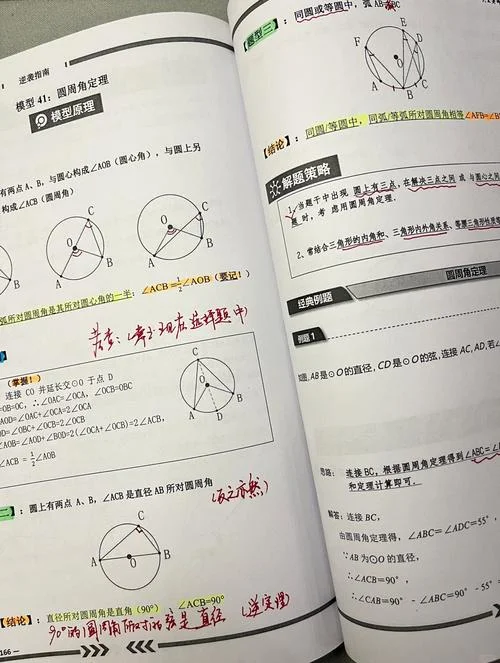 逆袭指南
模型 41：圆周角定理
模型原理
有两点 A、B，与圆心构成∠AOB（圆心角），与圆上另
构成∠ACB（圆周角）
C
O
A
B
C
O
A
B
弧所对圆周角是其所对圆心角的一半：∠ACB=½∠AOB（要记！）
选择题中
（掌握！）
连接 CO 并延长交⊙O 于点 D
=OB=OC，∴∠OAC=∠OCA，∠OCB=∠OBC
AOD=∠OAC+∠OCA=2∠OCA
OD=∠OBC+∠OCB=2∠OCB
AOB=∠AOD+∠BOD=2(∠OCA+∠OCB)=2∠ACB，
∠ACB = ½∠AOB
C
O
A
D
B
：圆上有两点 A、B，∠ACB 是直径 AB 所对圆周角
（反之亦然）
C
A
O
B
【结论】：直径所对圆周角是直角（90°） ∠ACB=90°
90°的圆周角所对的弦是直径（逆定理）
166
【题型三】：同圆或等圆中，弧 AB=弧BC
E
F
D
A
B
C
【结论】：同圆/等圆中，同弧/等弧所对圆周角相等 ∠AFB=∠B
解题策略
1、当题干中出现 圆上有三点，在解决三点之间 或 与圆心之间
题 时，考虑用圆周角定理.
2、常结合三角形的内角和、三角形内外角关系、等腰三角形
圆周角定理
经典例题
例题 1
如图，AB 是⊙O 的直径，CD 是⊙O 的弦，连接 AC，AD，若∠
思路： 连接 BC，根据圆周角定理得到∠ABC=∠
和定理计算即可.
解答：连接 BC，
由圆周角定理得，∠ABC=∠ADC=55°，
∵AB 为⊙O 的直径，
∴∠ACB=90°，
∴∠CAB=90° - ∠ABC=90° - 55°